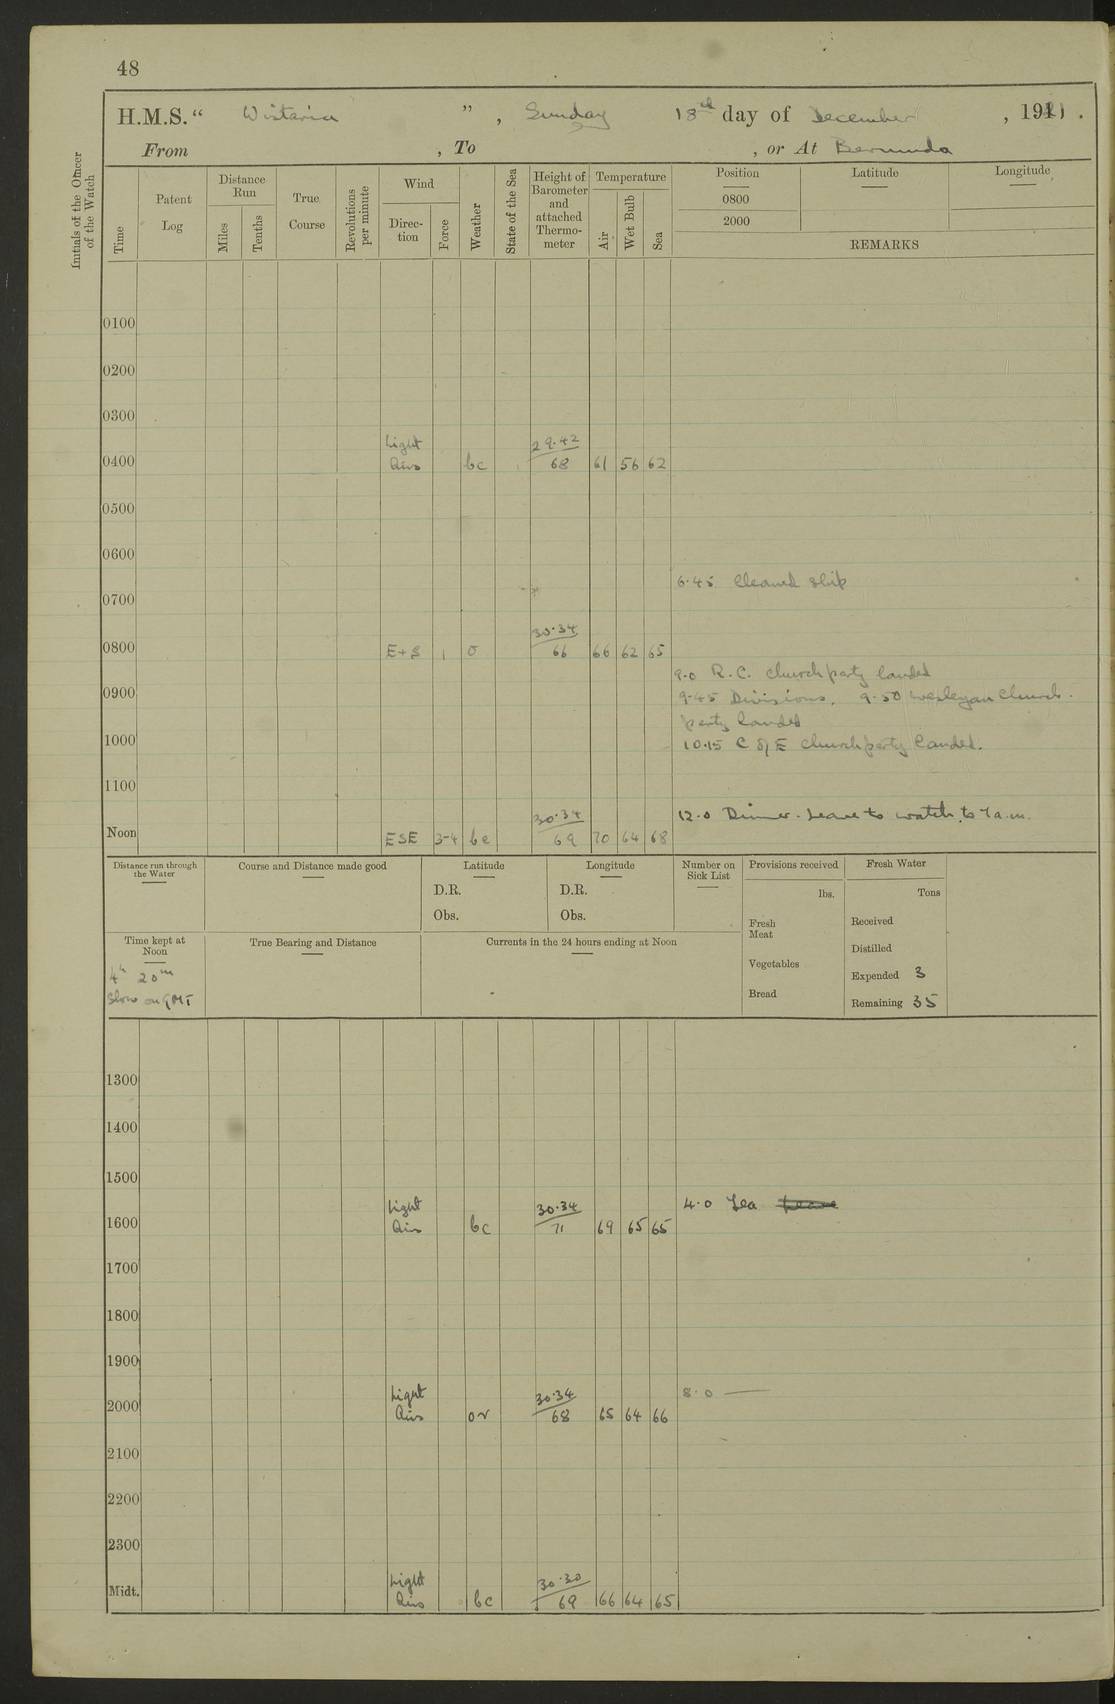 48
H.M.S. “ Wistaria ” , Sunday 18th day of December , 1921 .
From , To , or At Bermuda
Initials of the Officer of the Watch
Time
Patent Log
Distance Run
Miles
Tenths
True Course
Revolutions per minute
Wind
Direc-tion
Force
Weather
State of the Sea
Height of Barometer and attached Thermo-meter
Temperature
Air
Wet Bulb
Sea
Position Latitude Longitude
0800
2000
REMARKS
0100
0200
0300
Light 29.42
0400 Airs bc 68 61 56 62
0500
0600
6.45 Cleaned ship
0700
30.34
0800 E+S 1 o 66 66 62 65
9.0 R.C. church party landed
0900 9.45 Divisions. 9.50 Wesleyan Church
party landed
1000 10.15 C of E church party landed.
1100
30.34 12.0 Dinner. Leave to watch to 7 a.m.
Noon ESE 3-4 bc 69 70 64 68
Distance run through the Water
Course and Distance made good
Latitude
D.R.
Obs.
Longitude
D.R.
Obs.
Number on Sick List
Provisions received
lbs.
Fresh Meat
Vegetables
Bread
Fresh Water
Tons
Received
Distilled
Expended 3
Remaining 35
Time kept at Noon
4h 20m
Slow on GMT
True Bearing and Distance
Currents in the 24 hours ending at Noon
1300
1400
1500
Light 30.34 4.0 Tea Leave
1600 Airs bc 71 69 65 65
1700
1800
1900
Light 30.34 8.0 —
2000 Airs or 68 65 64 66
2100
2200
2300
Light 30.30
Midt. Airs bc 69 66 64 65